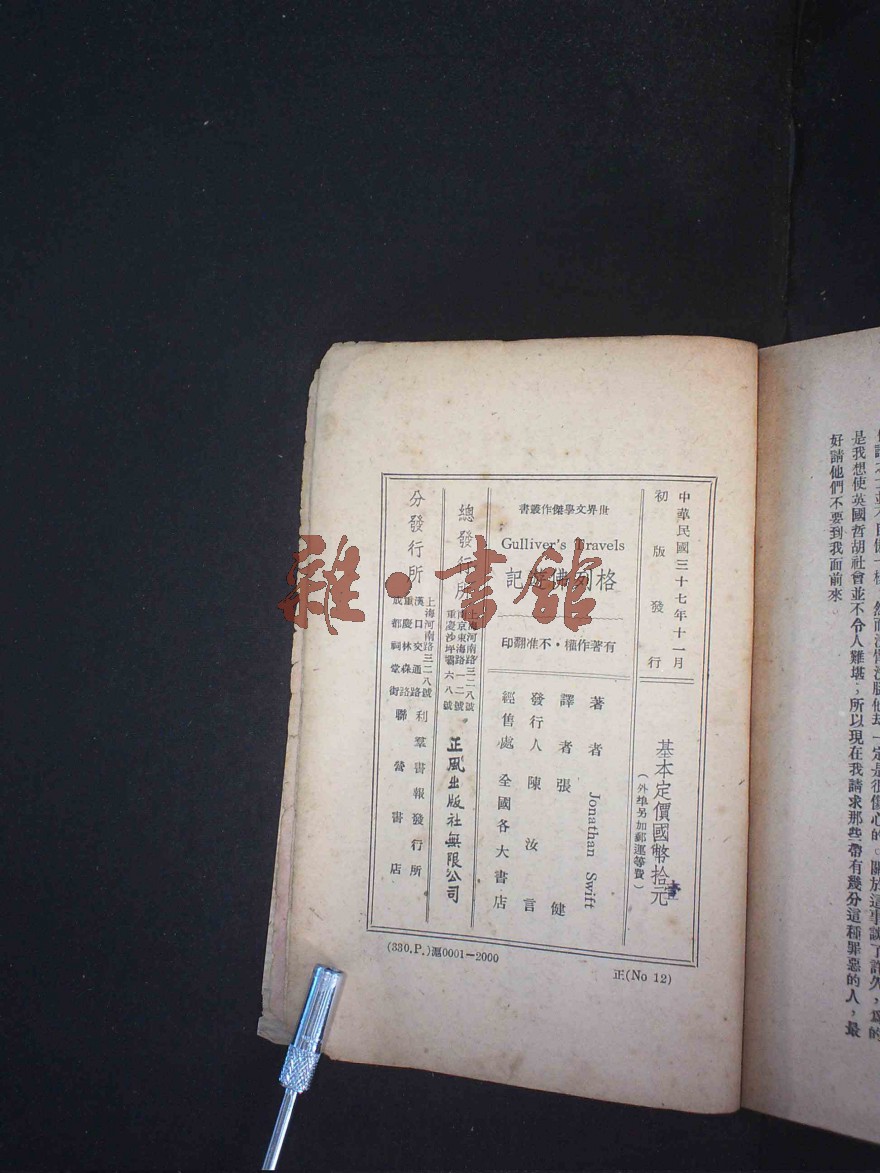 中華民國三十七年十一月
初版發行
基本定價國幣拾元
（外埠另加郵運等費）
世界文學傑作叢書
Gulliver's Travels
格列佛遊記
有著作權·不准翻印
著者 Jonathan Swift
譯者 張健
發行人 陳汝言
經售處 全國各大書店
總發行所
上海河南路三二八號
南京東海路一二號
重慶沙坪壩六八號
正風出版社無限公司
分發行所
上海河南路三二八號
漢口交通路
重慶林森路
成都祠堂街
利羣書報發行所
聯營書店
(330.P.)滬0001—2000
正(No 12)
雜·書館
是我想使英國哲胡社會並不令人難堪；所以現在我請求那些帶有幾分這種罪惡的人，最
好請他們不要到我面前來。